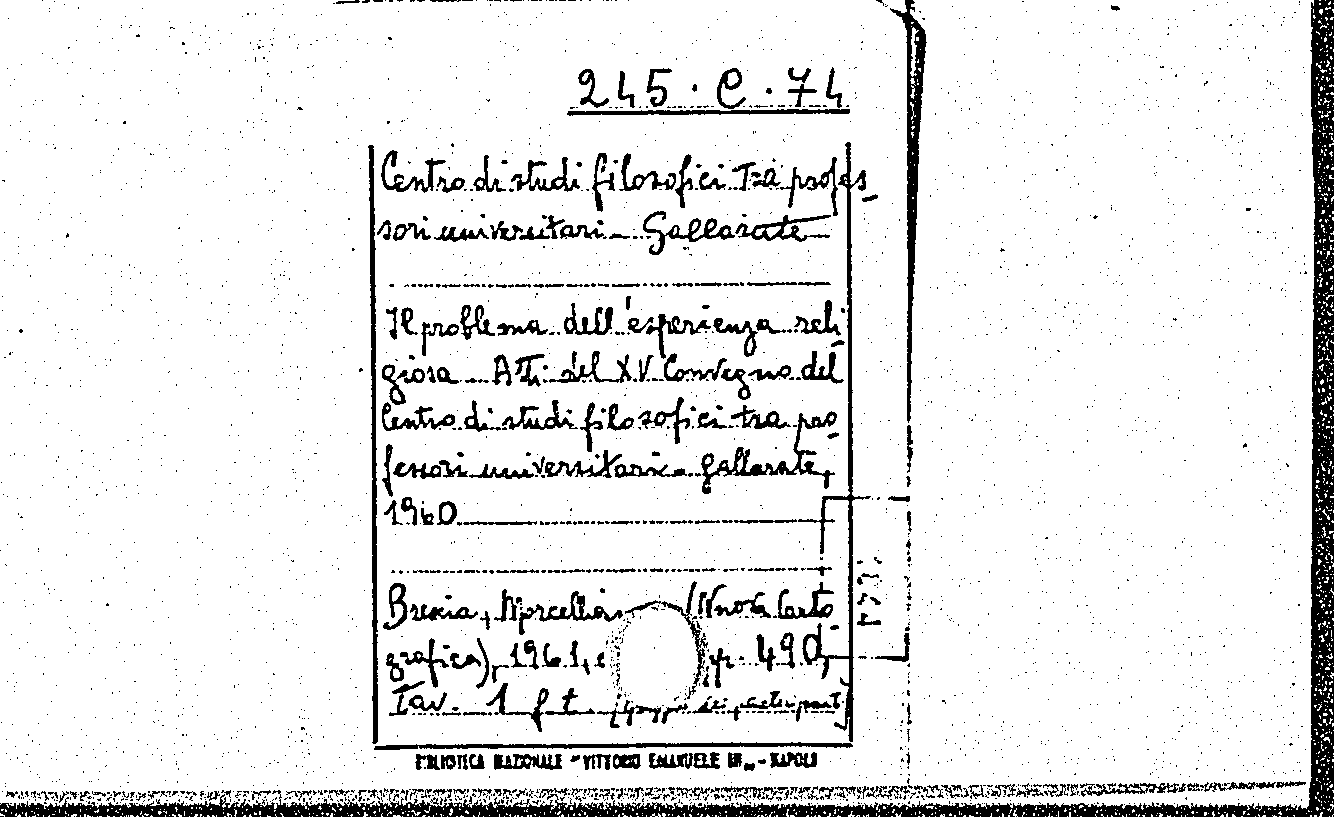 245 · C · 74
Centro di studi filosofici tra profes
sori universitari - Gallarate
Il problema dell'esperienza reli
giosa. Atti del XV Convegno del
Centro di studi filosofici tra pro
fessori universitari - Gallarate,
1960
Brescia, Morcelliana (Nuova Carto
grafica), 1961, p. 490,
Tav. 1 f. t. [Gruppo dei partecipanti]
BIBLIOTECA NAZIONALE "VITTORIO EMANUELE III" - NAPOLI